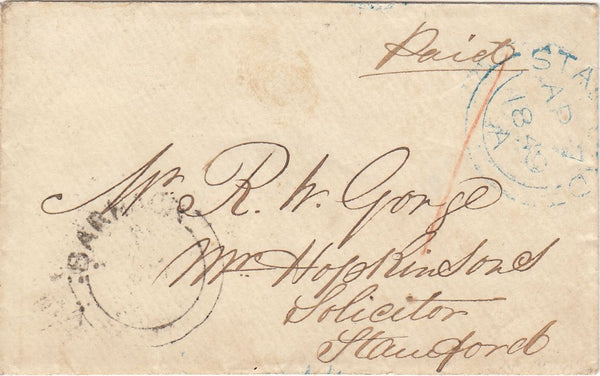 Paid
STA
AP 7
184
A
Mr R. W. Gorge
Mr Hopkinsons
Solicitor
Stamford